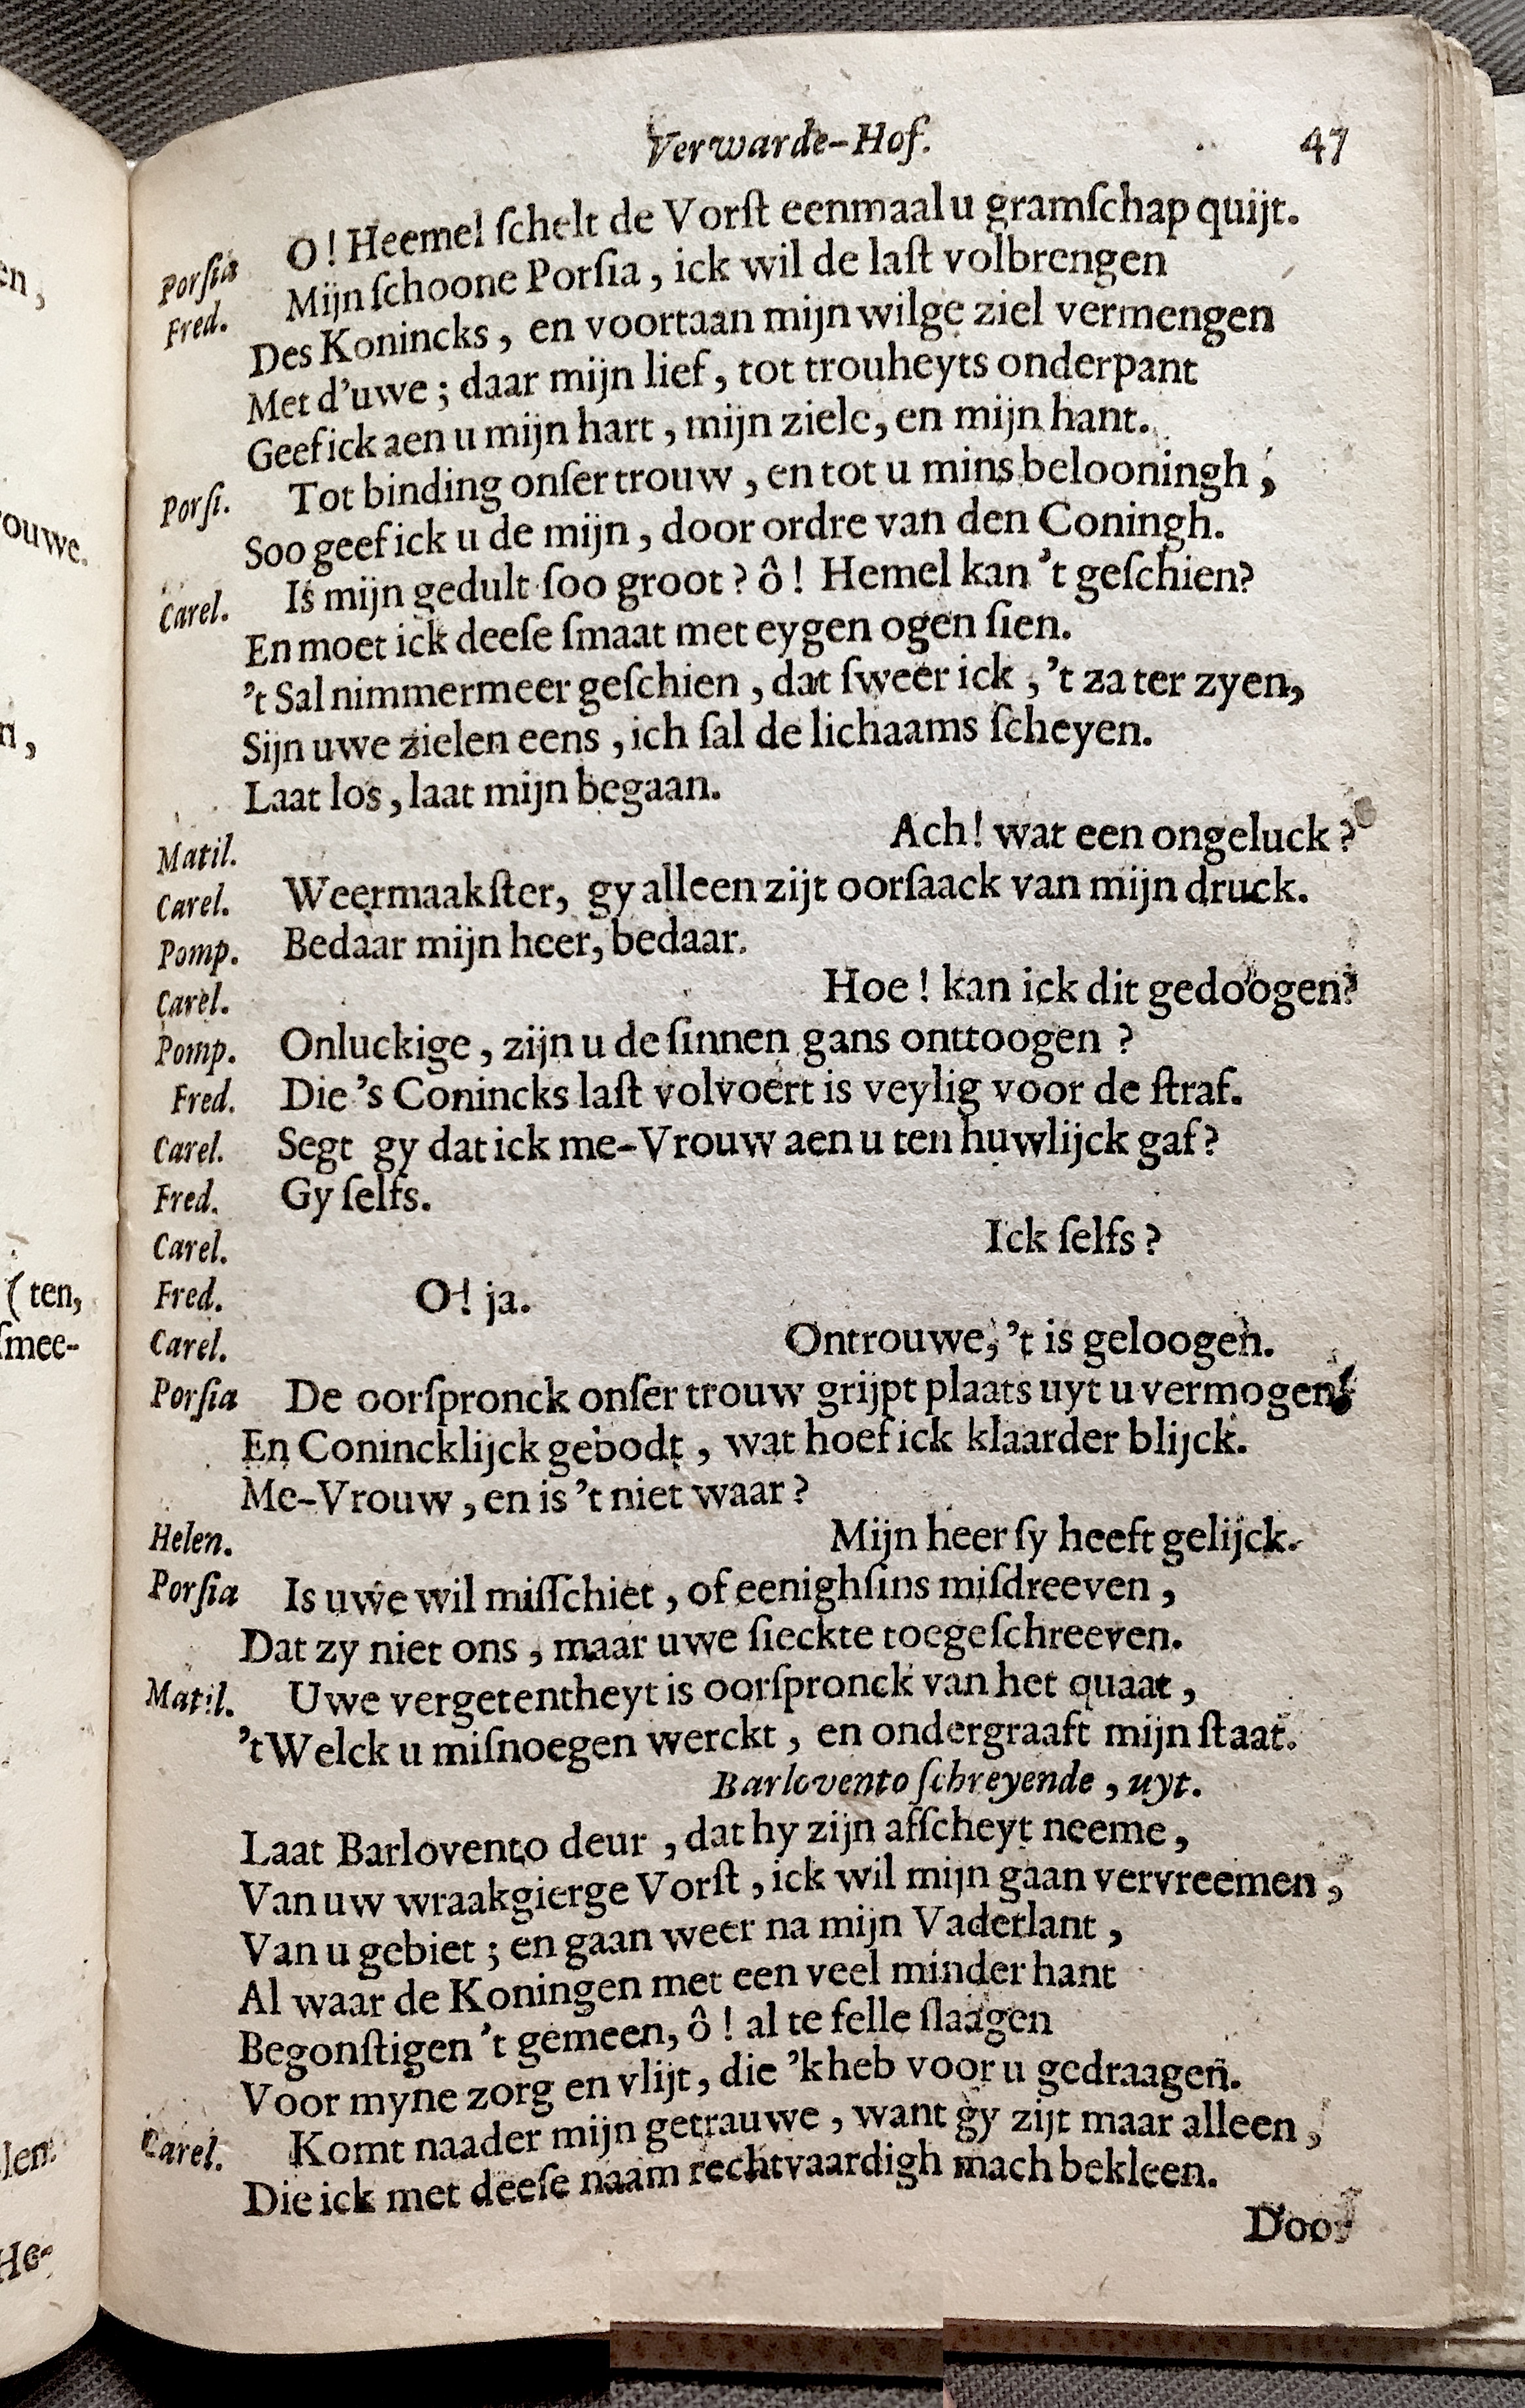 en,
ouwe.
n,
(ten,
ſmee-
len.
He-
Verwarde-Hof. 47
Porſia O! Heemel ſchelt de Vorſt eenmaal u gramſchap quijt.
Fred. Mijn ſchoone Porſia, ick wil de laſt volbrengen
Des Konincks, en voortaan mijn wilge ziel vermengen
Met d'uwe; daar mijn lief, tot trouheyts onderpant
Geef ick aen u mijn hart, mijn ziele, en mijn hant.
Porſi. Tot binding onſer trouw, en tot u mins belooningh,
Soo geef ick u de mijn, door ordre van den Coningh.
Carel. Is mijn gedult ſoo groot? ô! Hemel kan 't geſchien?
En moet ick deeſe ſmaat met eygen ogen ſien.
't Sal nimmermeer geſchien, dat ſweer ick, 't za ter zyen,
Sijn uwe zielen eens, ich ſal de lichaams ſcheyen.
Laat los, laat mijn begaan.
Matil. Ach! wat een ongeluck?
Carel. Weermaakſter, gy alleen zijt oorſaack van mijn druck.
Pomp. Bedaar mijn heer, bedaar.
Carel. Hoe! kan ick dit gedoogen?
Pomp. Onluckige, zijn u de ſinnen gans onttoogen?
Fred. Die 's Conincks laſt volvoert is veylig voor de ſtraf.
Carel. Segt gy dat ick me-Vrouw aen u ten huwlijck gaf?
Fred. Gy ſelfs.
Carel. Ick ſelfs?
Fred. O! ja.
Carel. Ontrouwe, 't is geloogen.
Porſia De oorſpronck onſer trouw grijpt plaats uyt u vermogen
En Conincklijck gebodt, wat hoef ick klaarder blijck.
Me-Vrouw, en is 't niet waar?
Helen. Mijn heer ſy heeft gelijck.
Porſia Is uwe wil miſſchiet, of eenighſins miſdreeven,
Dat zy niet ons, maar uwe ſieckte toegeſchreeven.
Matil. Uwe vergetentheyt is oorſpronck van het quaat,
't Welck u miſnoegen werckt, en ondergraaft mijn ſtaat.
Barlovento ſchreyende, uyt.
Laat Barlovento deur, dat hy zijn afſcheyt neeme,
Van uw wraakgierge Vorſt, ick wil mijn gaan vervreemen,
Van u gebiet; en gaan weer na mijn Vaderlant,
Al waar de Koningen met een veel minder hant
Begonſtigen 't gemeen, ô! al te felle ſlaagen
Voor myne zorg en vlijt, die 'k heb voor u gedraagen.
Carel. Komt naader mijn getrauwe, want gy zijt maar alleen,
Die ick met deeſe naam rechtvaardigh mach bekleen.
Door